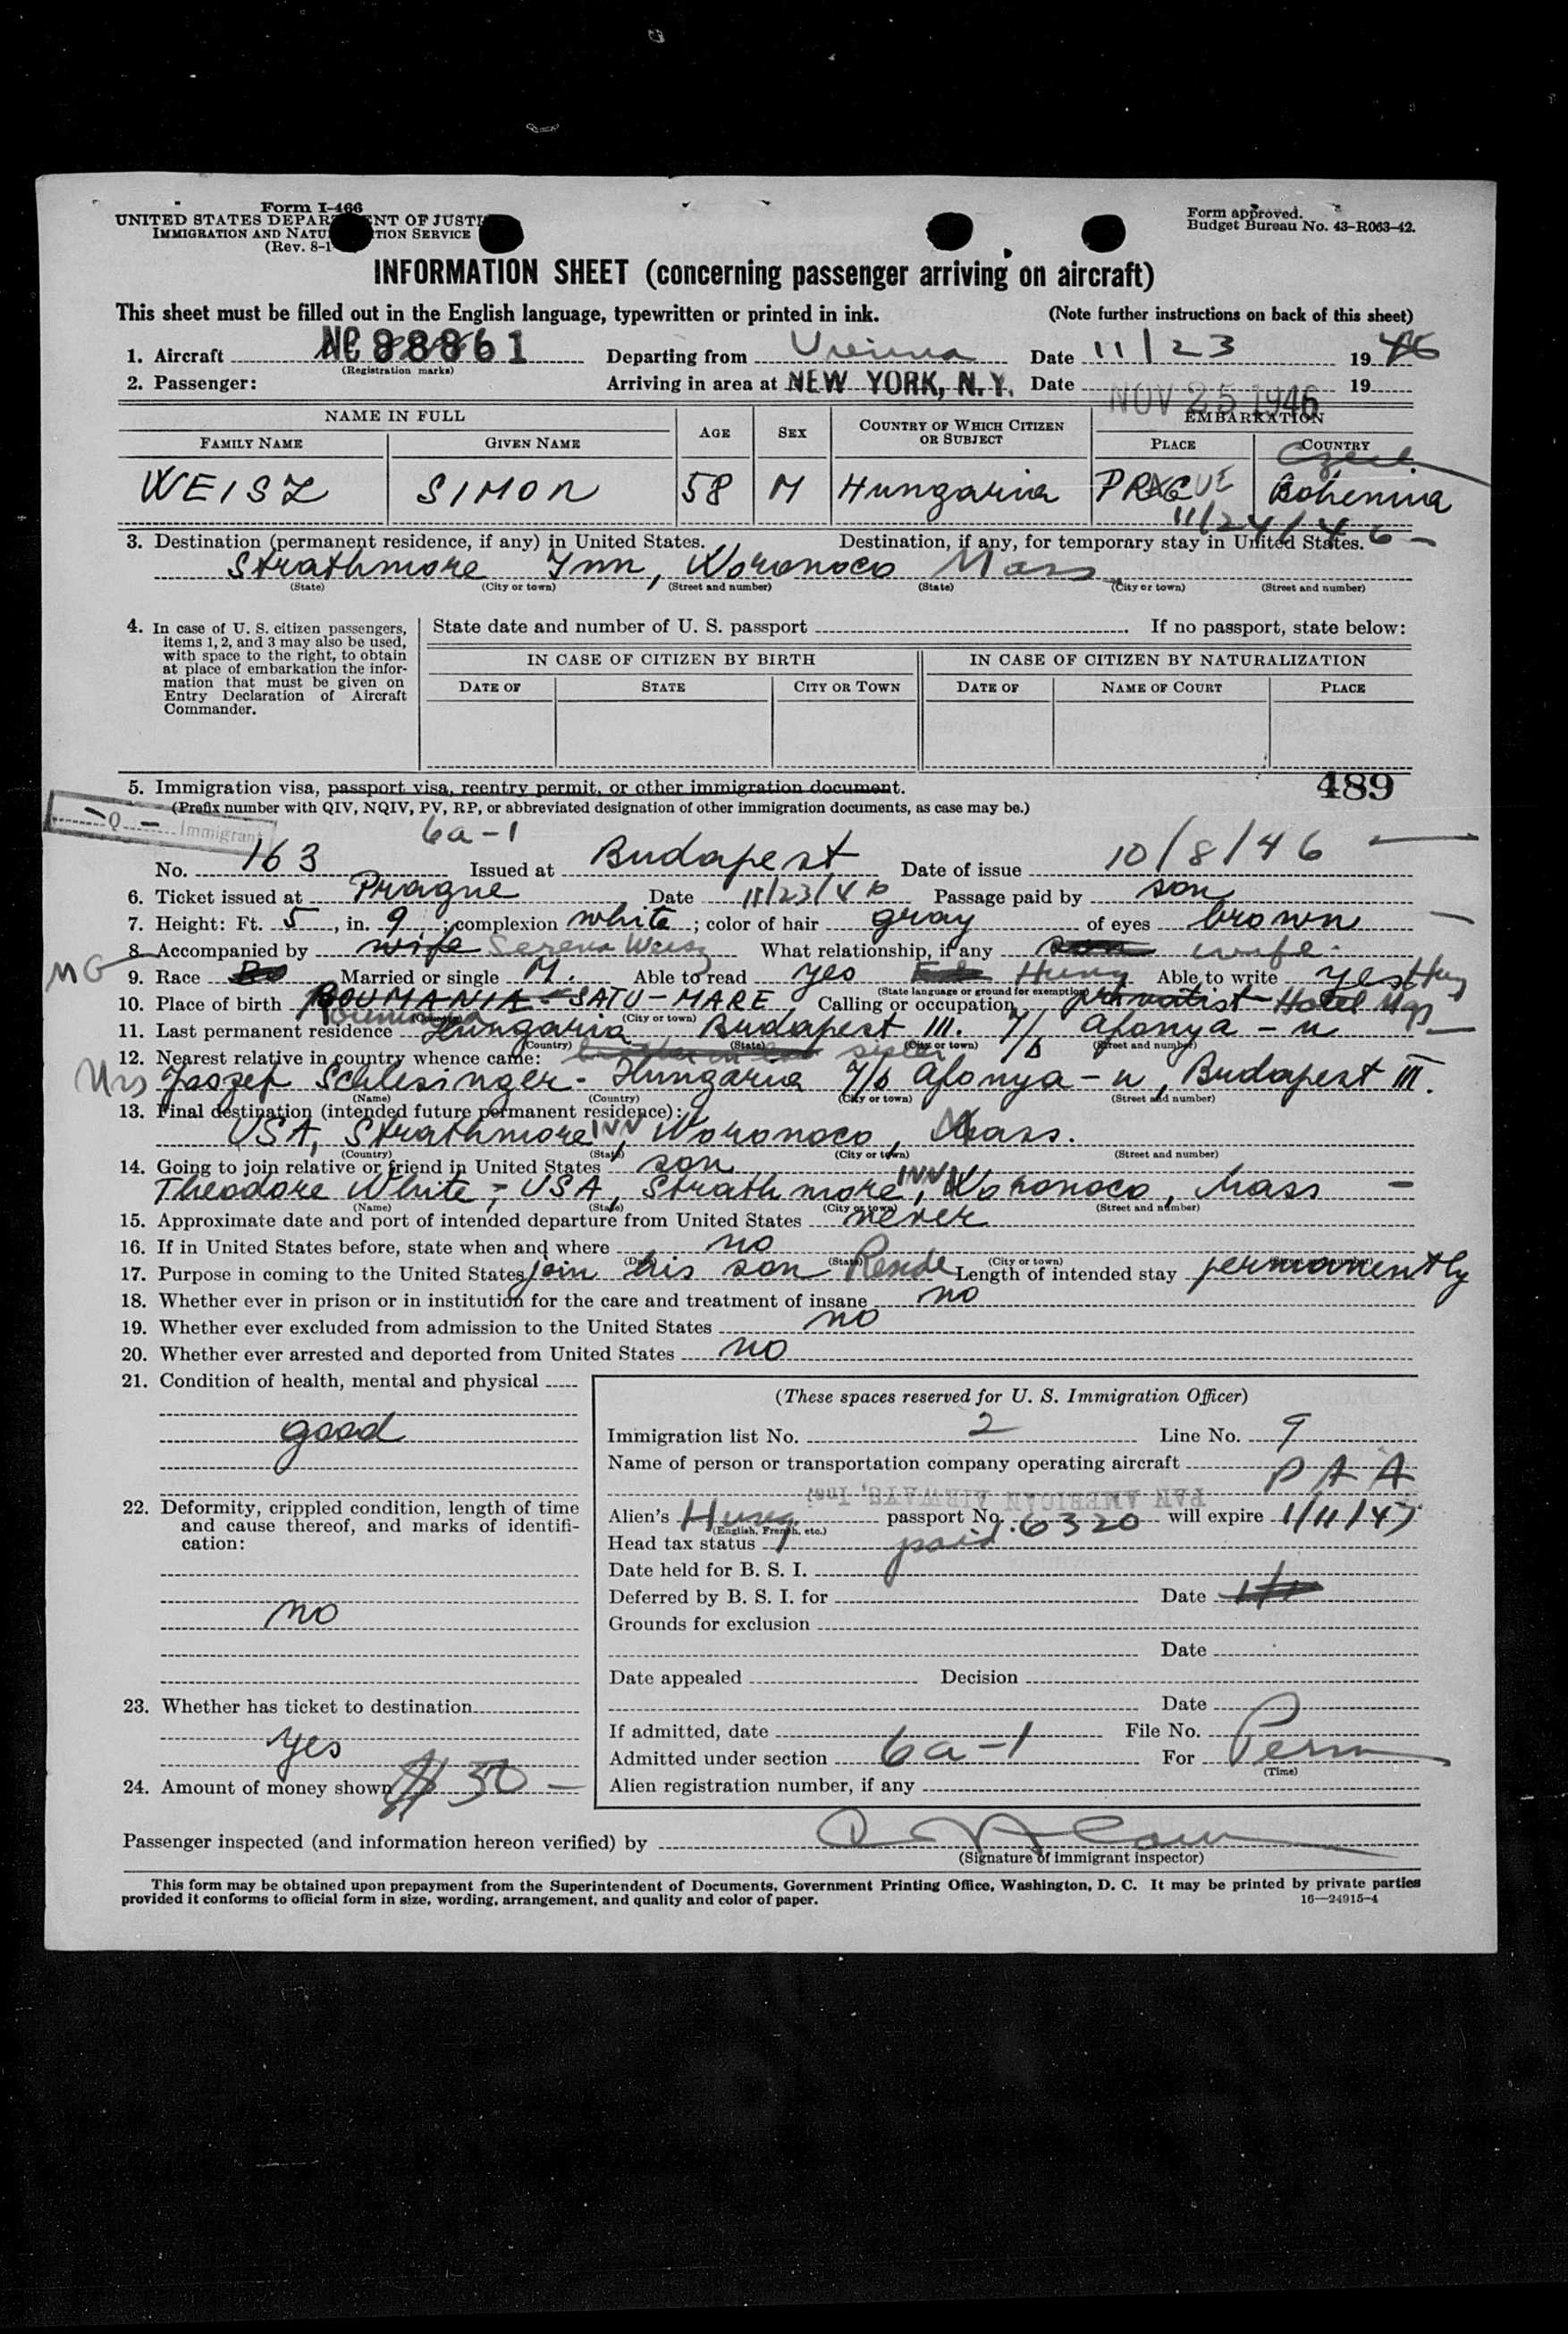 Form I-466
UNITED STATES DEPAR ENT OF JUSTI
IMMIGRATION AND NATU TION SERVICE
(Rev. 8-1
Form approved.
Budget Bureau No. 43-R063-42.
INFORMATION SHEET (concerning passenger arriving on aircraft)
This sheet must be filled out in the English language, typewritten or printed in ink. (Note further instructions on back of this sheet)
1. Aircraft NC 88861 Departing from Vienna Date 11/23 1946
(Registration marks)
2. Passenger: Arriving in area at NEW YORK, N.Y. Date NOV 25 1946 19
NAME IN FULL AGE SEX COUNTRY OF WHICH CITIZEN OR SUBJECT EMBARKATION
FAMILY NAME GIVEN NAME PLACE COUNTRY
Czech.
WEISZ SIMON 58 M Hungaria PRAGUE Bohemina
11/24/46
3. Destination (permanent residence, if any) in United States. Destination, if any, for temporary stay in United States.
Strathmore Inn, Woronoco Mass
(State) (City or town) (Street and number) (State) (City or town) (Street and number)
4. In case of U. S. citizen passengers, items 1, 2, and 3 may also be used, with space to the right, to obtain at place of embarkation the information that must be given on Entry Declaration of Aircraft Commander.
State date and number of U. S. passport . If no passport, state below:
IN CASE OF CITIZEN BY BIRTH IN CASE OF CITIZEN BY NATURALIZATION
DATE OF STATE CITY OR TOWN DATE OF NAME OF COURT PLACE
489
5. Immigration visa, passport visa, reentry permit, or other immigration document.
(Prefix number with QIV, NQIV, PV, RP, or abbreviated designation of other immigration documents, as case may be.)
Q Immigrant 6a-1
No. 163 Issued at Budapest Date of issue 10/8/46
6. Ticket issued at Prague Date 11/23/46 Passage paid by son
7. Height: Ft. 5, in. 9; complexion white; color of hair gray of eyes brown
8. Accompanied by wife Serena Weisz What relationship, if any son wife
MG
9. Race Married or single M. Able to read yes Hung Able to write yes Hung
(State language or ground for exemption)
10. Place of birth ROUMANIA - SATU-MARE Calling or occupation Hotel Mgr
(Country) (City or town)
11. Last permanent residence Hungaria Budapest III. 7/b Afonya-u
(Country) (State) (City or town) (Street and number)
12. Nearest relative in country whence came: sister
Mrs Jaszef Schlesinger - Hungaria 7/b Afonya-u, Budapest III.
(Name) (Country) (City or town) (Street and number)
13. Final destination (intended future permanent residence):
USA, Strathmore INN, Woronoco, Mass.
(Country) (State) (City or town) (Street and number)
14. Going to join relative or friend in United States son
Theodore White, - USA, Strathmore INN, Woronoco, Mass
(Name) (State) (City or town) (Street and number)
15. Approximate date and port of intended departure from United States never
16. If in United States before, state when and where no
(Date) (State) (City or town) (Street and number)
17. Purpose in coming to the United States join his son Reside Length of intended stay permanently
18. Whether ever in prison or in institution for the care and treatment of insane no
19. Whether ever excluded from admission to the United States no
20. Whether ever arrested and deported from United States no
21. Condition of health, mental and physical
good
22. Deformity, crippled condition, length of time and cause thereof, and marks of identification:
no
23. Whether has ticket to destination
yes
24. Amount of money shown $ 50
(These spaces reserved for U. S. Immigration Officer)
Immigration list No. 2 Line No. 9
Name of person or transportation company operating aircraft P A A
PAN AMERICAN AIRWAYS, Inc.
Alien's Hung. passport No. 6320 will expire 1/11/47
(English, French, etc.)
Head tax status paid
Date held for B. S. I.
Deferred by B. S. I. for Date
Grounds for exclusion
Date
Date appealed Decision
Date
If admitted, date File No.
Admitted under section 6a-1 For Perm
(Time)
Alien registration number, if any
Passenger inspected (and information hereon verified) by
(Signature of immigrant inspector)
This form may be obtained upon prepayment from the Superintendent of Documents, Government Printing Office, Washington, D. C. It may be printed by private parties
provided it conforms to official form in size, wording, arrangement, and quality and color of paper. 16—24915-4